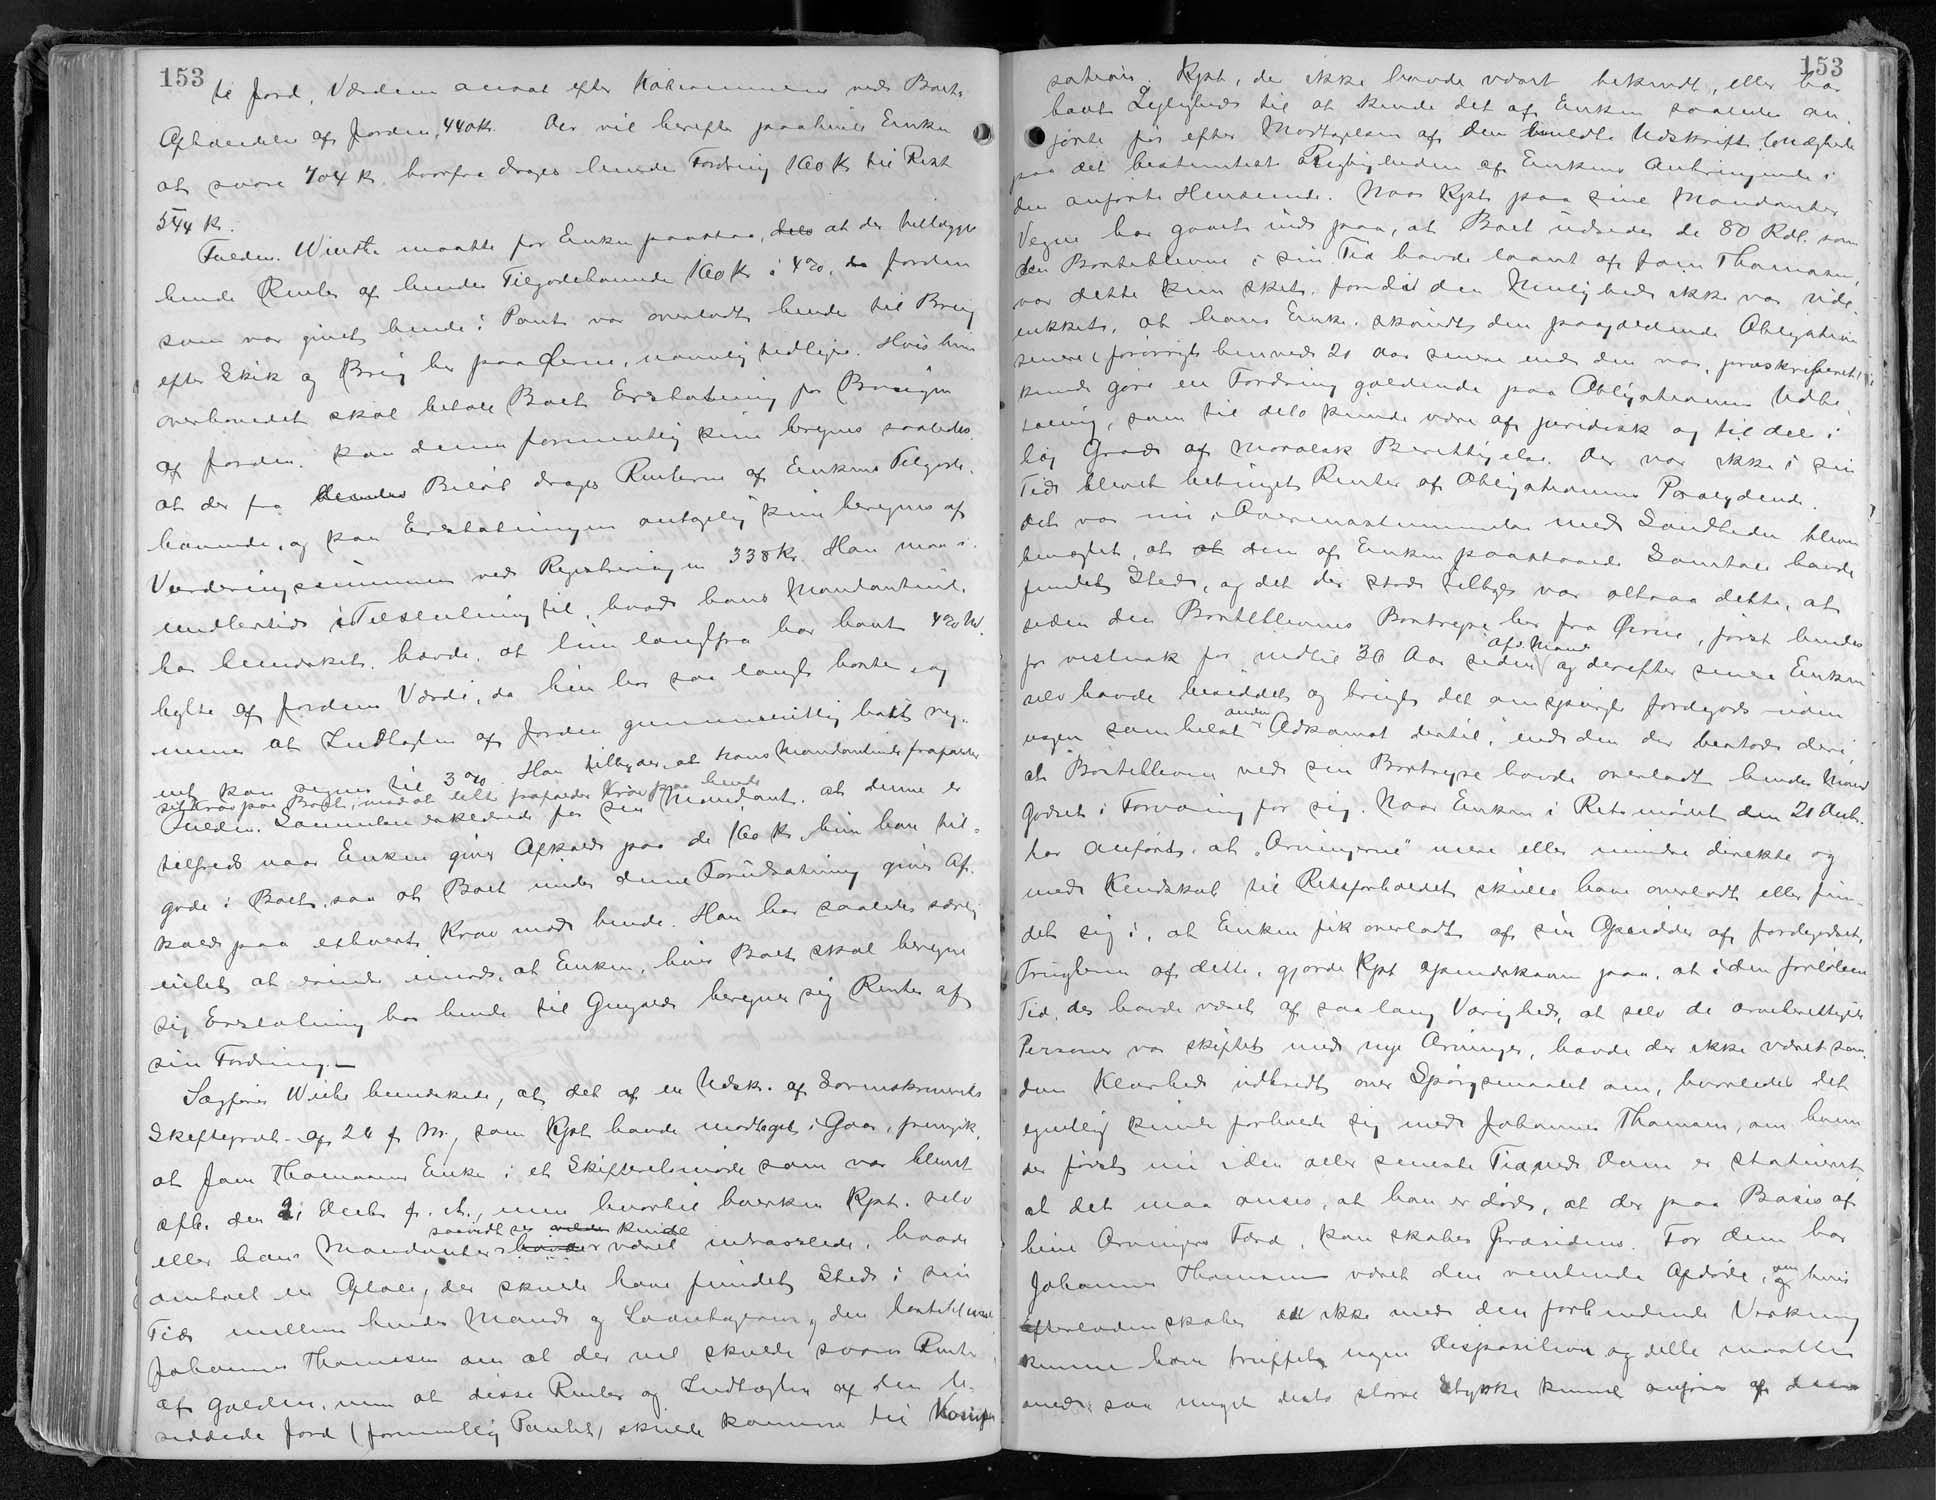 153
te Jord. Værdien ansat efter Købesummen ved Boets
Afhændelse af Jorden, 440 Kr. Der vil herefter paahvile Enken
at svare 704 Kr. hvorfra drages hendes Fordring 160 Kr til Rest
544 Kr.
Fuldm. Winther maatte for Enken paastaa, dels at der tillægges
hende Renter af hendes Tilgodehavende 160 Kr à 4%, da Jorden
som var givet hende i Pant var overladt hende til Brug
efter Skik og Brug her paa Øerne, navnlig tidligere. Hvis hun
overhovedet skal betale Boet Erstatning for Brugen
af Jorden, kan denne formentlig kun beregnes saaledes
at der fra Beløb drages Renterne af Enkens Tilgode-
havende, og kan Erstatningen antagelig kun beregnes af
Vurderingssummen ved Registreringen 338 Kr. Han maa i-
midlertid i Tilslutning til, hvad hans Mandantinde
har bemærket, hævde, at hun langtfra har havt 4% Ud-
bytte af Jordens Værdi, da hun bor saa langt borte, og
mener at Indtægten af Jorden gennemsnitlig højst reg-
net kan regnes til 3%. Han tilbyder, at hans Mandantinde frafalder
sit Krav paa Boet, imod at dette frafalder Krav paa hende
Fuldm. Samuelsen erklærede for sin Mandant, at denne er
tilfreds naar Enken giver Afkald paa de 160 Kr. hun har til-
gode i Boet, saa at Boet under denne Forudsætning giver Af-
kald paa ethvert Krav mod hende. Han har saaledes særlig
intet at erindre imod, at Enken, hvis Boet skal beregne
sig Erstatning hos hende til Gengæld beregner sig Renter af
sin Fordring.
Sagfører Winther bemærkede, at det af en Udsk. af Sorenskriverens
Skifteprot. af 26 f. M., som Kpt havde modtaget i Gaar, fremgik,
at Joen Thomasens Enke i et Skifteretsmøde som var blevet
afh. den 21 Decbr f. A., men hvortil hverken Kpt. selv
saavidt ses kunde
eller hans Mandanter havde været indvarslede, havde
omtalt en Aftale, der skulde have fundet Sted i sin
Tid mellem hendes Mand og Laantageren, den bortblevne
Johannes Thomsen om at der vel skulde svares Rente
af Gælden, men at disse Renter og Indtægten af den be-
siddede Jord (formentlig Pantet) skulde komme til Kompen-
153
sation. Kpt, der ikke havde været bekendt, eller har
havt Lejlighed til at kende det af Enken saaledes an-
førte før efter Modtagelsen af den Udskrift, benægtede
paa det bestemteste Rigtigheden af Enkens Anbringende i
den anførte Henseende. Naar Kpt paa sine Mandanters
Vegne har gaaet ind paa, at Boet udreder de 80 Rdl. som
den Bortblevne i sin Tid havde laant af Joen Thomasen,
var dette kun sket, fordi den Mulighed ikke var ude-
lukket, at hans Enke, skøndt den paagældende Obligation
senere (forøvrigt henved 20 Aar senere end den var præskriberet)
kunde gøre en Fordring gældende paa Obligationens Udbe-
taling, som til dels kunde være af juridisk og til dels i
høj Grad af moralsk Berettigelse. Der var ikke i sin
Tid blevet betinget Renter af Obligationens Paalydende.
Det var nu i Overensstemmelse med Sandheden bleven
benægtet, at den af Enken paastaaede Samtale havde
fundet Sted, og det der stod tilbage var altsaa dette, at
siden den Bortblevnes Bortrejse her fra Øerne, først hendes
afd. Mand
for vistnok for indtil 30 Aar siden og derefter senere Enken
selv havde besiddet og brugt det omspurgte Jordegods uden
anden
nogen somhelst Adkomst dertil, end den der bestod deri
at Bortblevne ved sin Bortrejse havde overladt hendes Mand
Godset i Forvaring for sig. Naar Enken i Retsmødet den 21 Decbr.
har anført, at "Arvingerne" mere eller mindre direkte og
med Kendskab til Retsforholdet skulle have overladt eller fun-
det sig i, at Enken fik overladt af sin Afsidder af Jordegodset,
Frugterne af dette, gjorde Kpt opmærksom paa, at i den forløbne
Tid, der havde været af saa lang Varighed, at selv de arveberettigede
Personer var skiftet med nye Arvinger, havde der ikke været saa-
dan Klarhed udbredt over Spørgsmaalet om, hvorledes det
egentlig kunde forholde sig med Johannes Thomasen, om hvem
der først nu i den aller seneste Tid ved Dom er statueret
at det maa anses, at han er død, at der paa Basis af
hine Arvingers Færd, kan skabes Præsidens. For dem har
Johannes Thomasen været den ventende Afdøde, om hvis
Efterladenskaber de ikke med den forbindende Virkning
kunne have truffet nogen Disposition og dette maatte
med saa meget desto større Styrke kunne anføres af